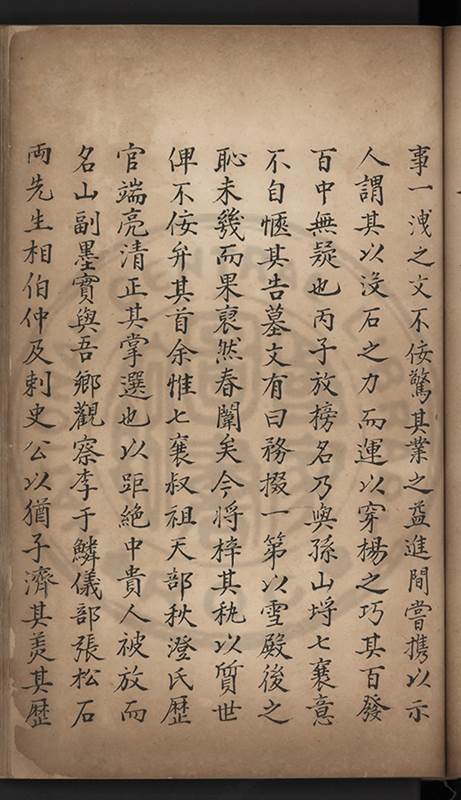 事一洩之文不佞驚其業之益進間嘗攜以示
人謂其以没石之力而運以穿楊之巧其百發
百中無疑也丙子放榜名乃與孫山埒七襄意
不自愜其告墓文有曰務掇一第以雪殿後之
恥未幾而果裒然春闈矣今将梓其秇以質世
俾不佞弁其首余惟七襄叔祖天部秋澄氏歷
官端亮清正其掌選也以距絶中貴人被放而
名山副墨實與吾鄉觀察李于鱗儀部張松石
兩先生相伯仲及剌史公以猶子濟其羙其歷